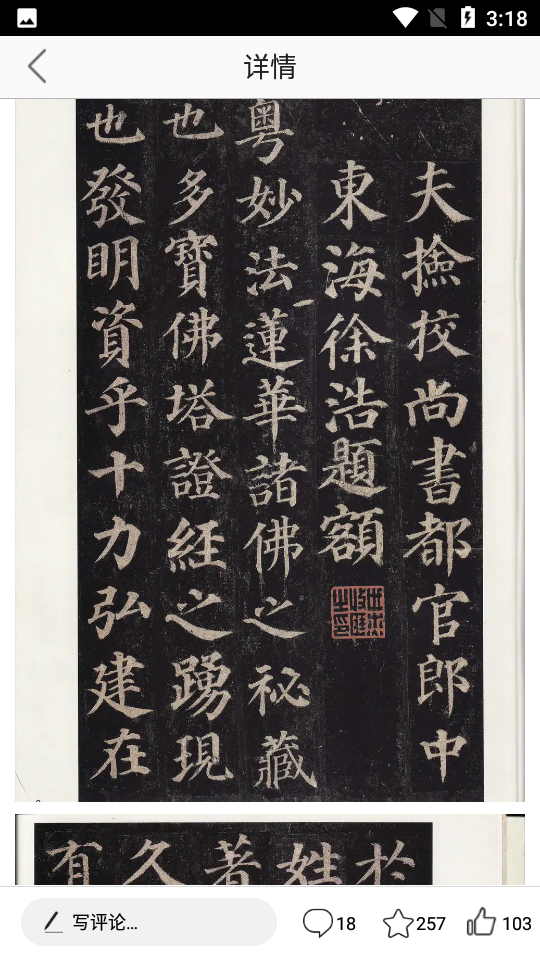 3:18
详情
夫撿校尚書都官郎中
東海徐浩題額
粵妙法蓮華諸佛之秘藏
也多寶佛塔證經之踴現
也發明資乎十力弘建在
於
姓
著
久
有
写评论...
18
257
103